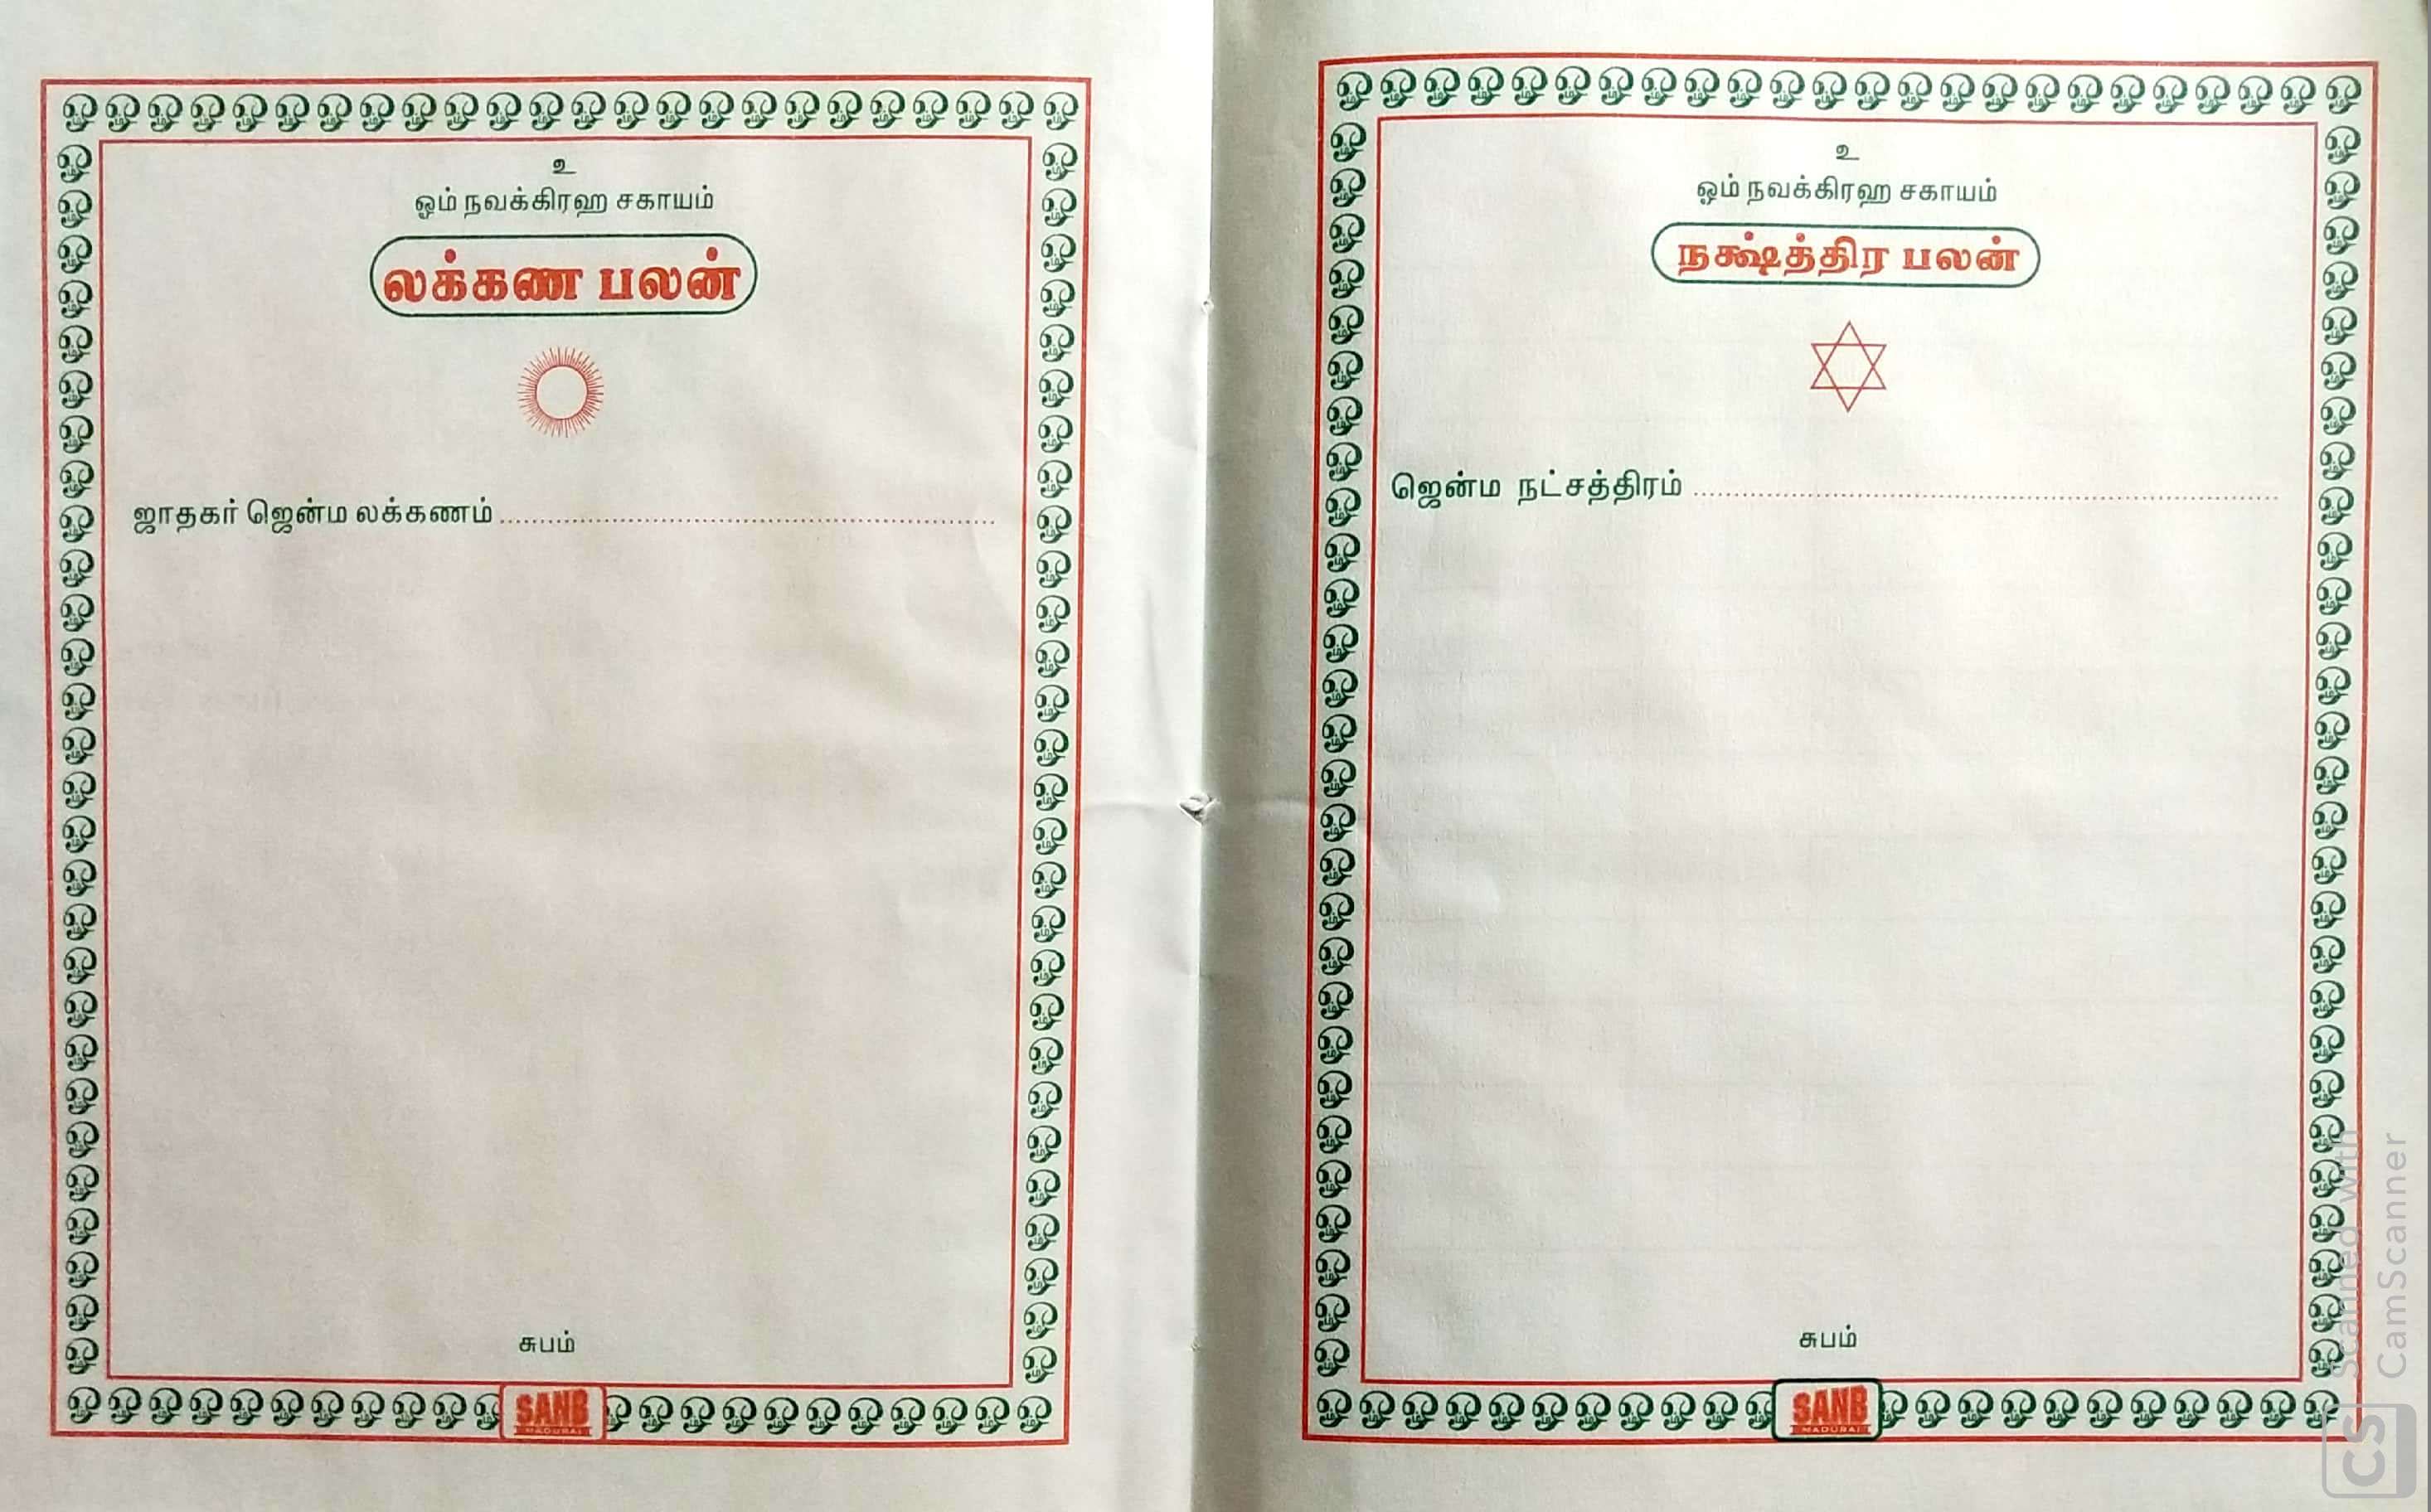 உ
ஓம் நவக்கிரஹ சகாயம்
லக்கண பலன்
ஜாதகர் ஜென்ம லக்கணம்
சுபம்
SANB
MADURAI
உ
ஓம் நவக்கிரஹ சகாயம்
நக்ஷ்த்திர பலன்
ஜென்ம நட்சத்திரம்
சுபம்
SANB
MADURAI
Scanned with
CamScanner
CS